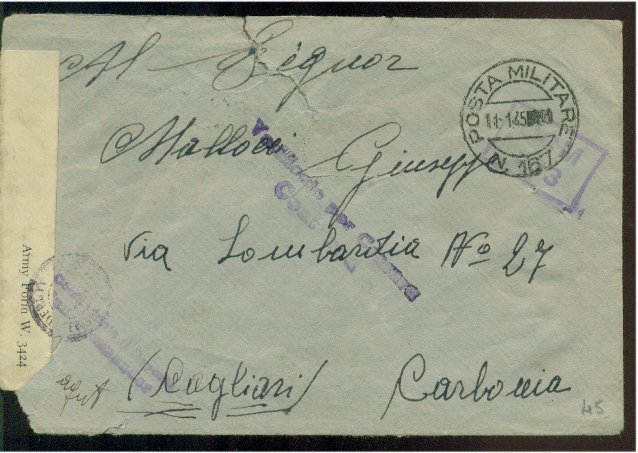 Al Signor
POSTA MILITARE
11·1·45
N. 167
Mallocci Giuseppe
3
Verificato per Censura
Via Lombardia No 27
Army Form W. 3424
(Cagliari) Carbonia
45